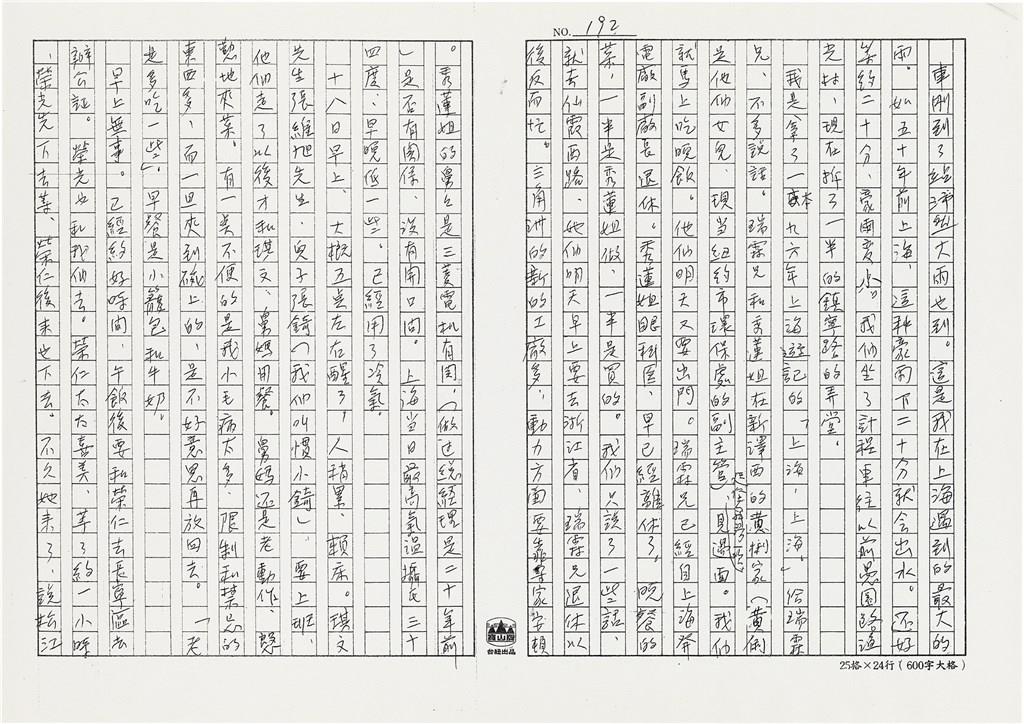 NO. 192
車剛到了經緯新大雨也到。這是我在上海遇到的最大的
雨。如五十年前上海,這種豪雨下二十分就會出水。还好
等約二十分,豪雨变小。我们坐了計程車往以前愚園路漁
光村,現在拆了一半的鎮寧路的弄堂。
我是拿了一本九六年上海遊記的「上海,上海。」給瑞霖
兄,不多說話。瑞霖兄和秀蓮姐在新澤西的黄捌家(黄俐
是他们女兒,現当纽約市環保處的副主管),見過面。我们
就馬上吃晚飲。他们明天又要出門。瑞霖兄已經自上海發
電廠副廠長退休。秀蓮姐眼科医,早已經離休了。晚餐的
菜,一半是秀蓮姐做,一半是買的。我们只談了一些話,
就去仙霞西路。她们明天早上要去浙江省,瑞霖兄退休以
後反而忙。三角洲的新的工廠多,動力方面要靠專家安頓
。秀蓮姐的舅公是三菱電机有関,(做过總經理是二十年前
)是否有関係,沒有開口問。上海当日最高氣溫攝氏三十
四度,早晚低一些。已經用了冷氣。
十八日早上,大概五点左右醒了,人稍累,賴床。琪文
先生張維旭先生,兒子張錡(我们叫慣小錡)要上班,
他们走了以後才和琪文、舅媽用餐。舅媽还是老動作,慇
懃地夾菜。有一点不便的是我小毛病太多,限制和禁忌的
東西多,而一旦夾到碗上的,是不好意思再放回去。「老
是多吃一些」。早餐是小籠包和牛奶。
早上無事。已經約好時间,午飲後要和榮仁去長寧區去
辦公証。榮光也和我们去。榮仁太太喜美,等了約一小時
,榮光先下去等,榮仁後来也下去。不久她来了,說松江
25格×24行(600字大格)
台紐出品